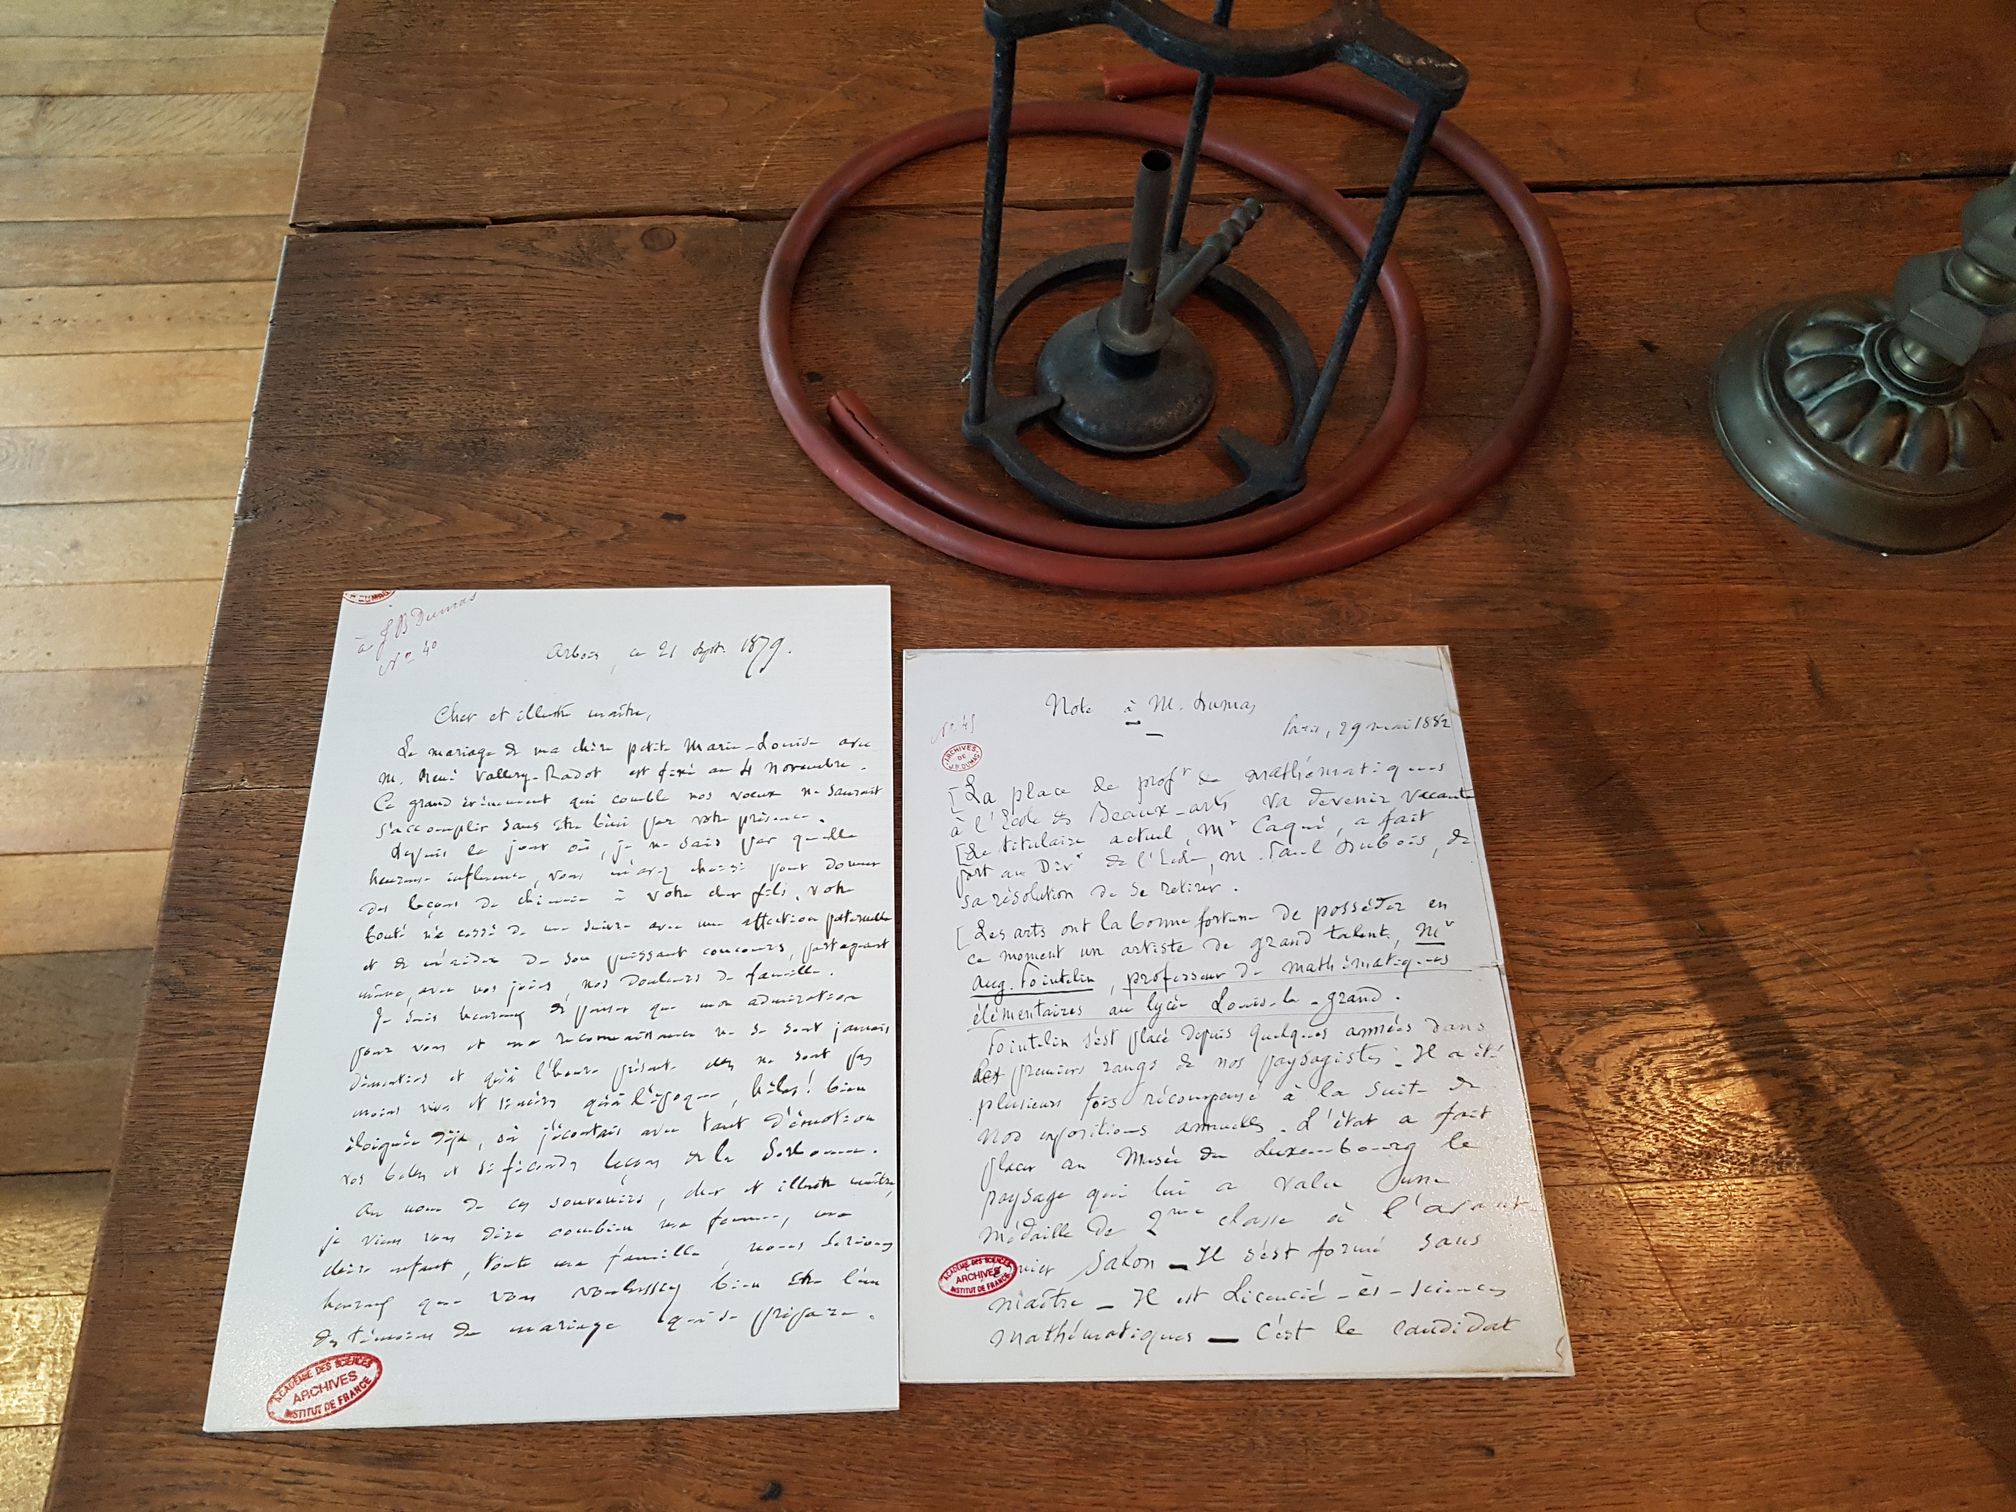 J.B. DUMAS
à J B Dumas
No 40
Arbois, ce 21 Sept. 1879.
Cher et illustre maître,
Le mariage de ma chère petite Marie-Louise avec
M. René Vallery-Radot est fixé au 4 Novembre.
Ce grand événement qui comble nos vœux ne saurait
s'accomplir sans être béni par votre présence.
Depuis le jour où, je ne sais par quelle
heureuse influence, vous m'avez choisi pour donner
des leçons de chimie à votre cher fils, votre
bonté n'a cessé de me suivre avec une affection paternelle
et de m'aider de son puissant concours, partageant
même, avec nos joies, nos douleurs de famille.
Je suis heureux de penser que mon admiration
pour vous et ma reconnaissance ne se sont jamais
démenties et qu'à l'heure présente elles ne sont pas
moins vives et sincères qu'à l'époque, hélas! bien
éloignée déjà, où j'écoutais avec tant d'émotion
vos belles et si fécondes leçons de la Sorbonne.
Au nom de ces souvenirs, cher et illustre maître,
je viens vous dire combien ma femme, ma
chère enfant, toute ma famille nous serions
heureux que vous voulussiez bien être l'un
des témoins du mariage qui se prépare.
ACADÉMIE DES SCIENCES
ARCHIVES
INSTITUT DE FRANCE
Note à M. Dumas
Paris, 29 mai 1882
No 45
ARCHIVES
DE
J.B. DUMAS
[La place de profr de mathématiques
à l'Ecole des Beaux-arts va devenir vacante
[Le titulaire actuel, Mr Caqué, a fait
part au Dirr de l'Ecole, M. Paul Dubois, de
sa résolution de se retirer.
[Les arts ont la bonne fortune de posséder en
ce moment un artiste de grand talent, Mr
Aug. Pointelin, professeur de mathématiques
élémentaires au lycée Louis-le-grand.
Pointelin s'est placé depuis quelques années dans
les premiers rangs de nos paysagistes. Il a été
plusieurs fois récompensé à la suite de
nos expositions annuelles. L'état a fait
placer au Musée du Luxembourg le
paysage qui lui a valu une
médaille de 2me classe à l'avant
nier Salon — Il s'est formé sans
maître — Il est Licencié-ès-sciences
mathématiques — C'est le candidat
ACADÉMIE DES SCIENCES
ARCHIVES
INSTITUT DE FRANCE